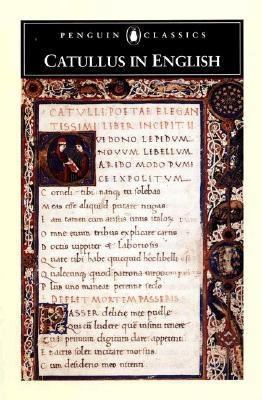 PENGUIN CLASSICS
CATULLUS IN ENGLISH
CATVLLI POETAE ELEGAN
TISSIMI LIBER INCIPIT
VI DONO LEPIDVM
NOVVM LIBELLVM
ARIDO MODO PVMI
CE EXPOLITVM
Corneli tibi nanq tu solebas
Meas esse aliquid putare nugas
tam cum ausus unus italoꝝ
Omne euum tribus explicare cartis
Doctis iuppiter & laboriosis
Quare tibi habe quicquid hoc libelli
patrona
uno maneat perenne seclo
DEFLET MORTEM PASSERIS
ASSER delitie mee puelle
Qui cum ludere quem insinu tenere
primum digitum dare
Et acris solet incitare morsus
Cum desiderio meo nitenti